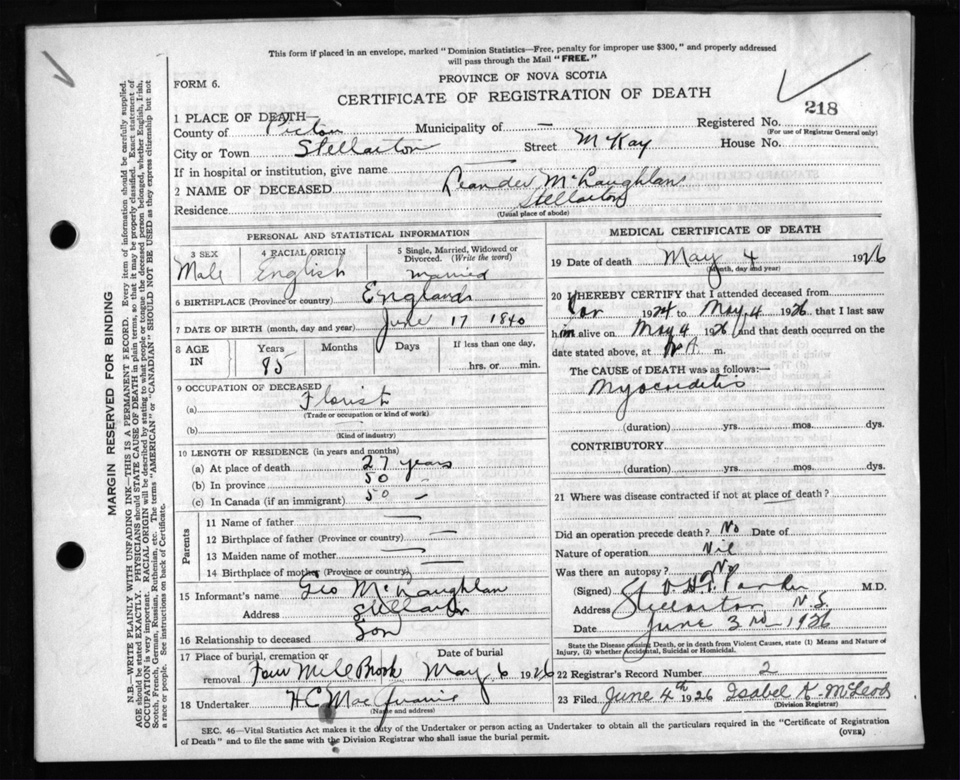 This form if placed in an envelope, marked "Dominion Statistics—Free, penalty for improper use $300," and properly addressed
will pass through the Mail "FREE."
FORM 6.
PROVINCE OF NOVA SCOTIA
CERTIFICATE OF REGISTRATION OF DEATH
218
1 PLACE OF DEATH—
County of Pictou Municipality of — Registered No.
(For use of Registrar General only)
City or Town Stellarton Street McKay House No.
If in hospital or institution, give name —
2 NAME OF DECEASED Leander McLaughlan
Residence Stellarton
(Usual place of abode)
PERSONAL AND STATISTICAL INFORMATION
3 SEX 4 RACIAL ORIGIN 5 Single, Married, Widowed or Divorced. (Write the word)
Male English married
6 BIRTHPLACE (Province or country) England
7 DATE OF BIRTH (month, day and year) June 17 1840
8 AGE IN Years Months Days If less than one day,
85 hrs. or min.
9 OCCUPATION OF DECEASED
(a) Florist
(Trade or occupation or kind of work)
(b) —
(Kind of industry)
10 LENGTH OF RESIDENCE (in years and months)
(a) At place of death 27 years
(b) In province 50 "
(c) In Canada (if an immigrant) 50 "
Parents
11 Name of father —
12 Birthplace of father (Province or country) —
13 Maiden name of mother —
14 Birthplace of mother (Province or country) —
15 Informant's name Geo McLaughlan
Address Stellarton
16 Relationship to deceased Son
17 Place of burial, cremation or removal Date of burial
Four Mile Brook May 6 1926
18 Undertaker H C Mac
(Name and address)
MEDICAL CERTIFICATE OF DEATH
19 Date of death May 4 1926
(Month, day and year)
20 I HEREBY CERTIFY that I attended deceased from
1924 to May 4 1926, that I last saw
him alive on May 4 1926 and that death occurred on
date stated above, at A. m.
The CAUSE OF DEATH was as follows:—
Myocarditis
(duration) yrs. mos. dys.
CONTRIBUTORY
(duration) yrs. mos. dys.
21 Where was disease contracted if not at place of death?
Did an operation precede death? No Date of
Nature of operation Nil
Was there an autopsy? No
(Signed) M.D.
Address Stellarton N.S.
Date June 3rd 1926
State the Disease causing Death, or in death from Violent Causes, state (1) Means and Nature of
Injury, (2) whether Accidental, Suicidal or Homicidal.
22 Registrar's Record Number 2
23 Filed June 4th 1926 Isabel K. McLeod
(Division Registrar)
SEC. 46—Vital Statistics Act makes it the duty of the Undertaker or person acting as Undertaker to obtain all the particulars required in the "Certificate of Registration
of Death" and to file the same with the Division Registrar who shall issue the burial permit.
(OVER)
MARGIN RESERVED FOR BINDING
N.B.—WRITE PLAINLY WITH UNFADING INK—THIS IS A PERMANENT RECORD. Every item of information should be carefully supplied.
AGE should be stated EXACTLY. PHYSICIANS should STATE CAUSE OF DEATH in plain terms, so that it may be properly classified. Exact statement of
OCCUPATION is very important. RACIAL ORIGIN will be described by stating to what people or tongue the deceased person belonged, whether English, Irish,
Scotch, French, German, Russian, Ruthenian, etc. The terms "AMERICAN" or "CANADIAN" SHOULD NOT BE USED as they express citizenship but not
a race or people. See instructions on back of Certificate.